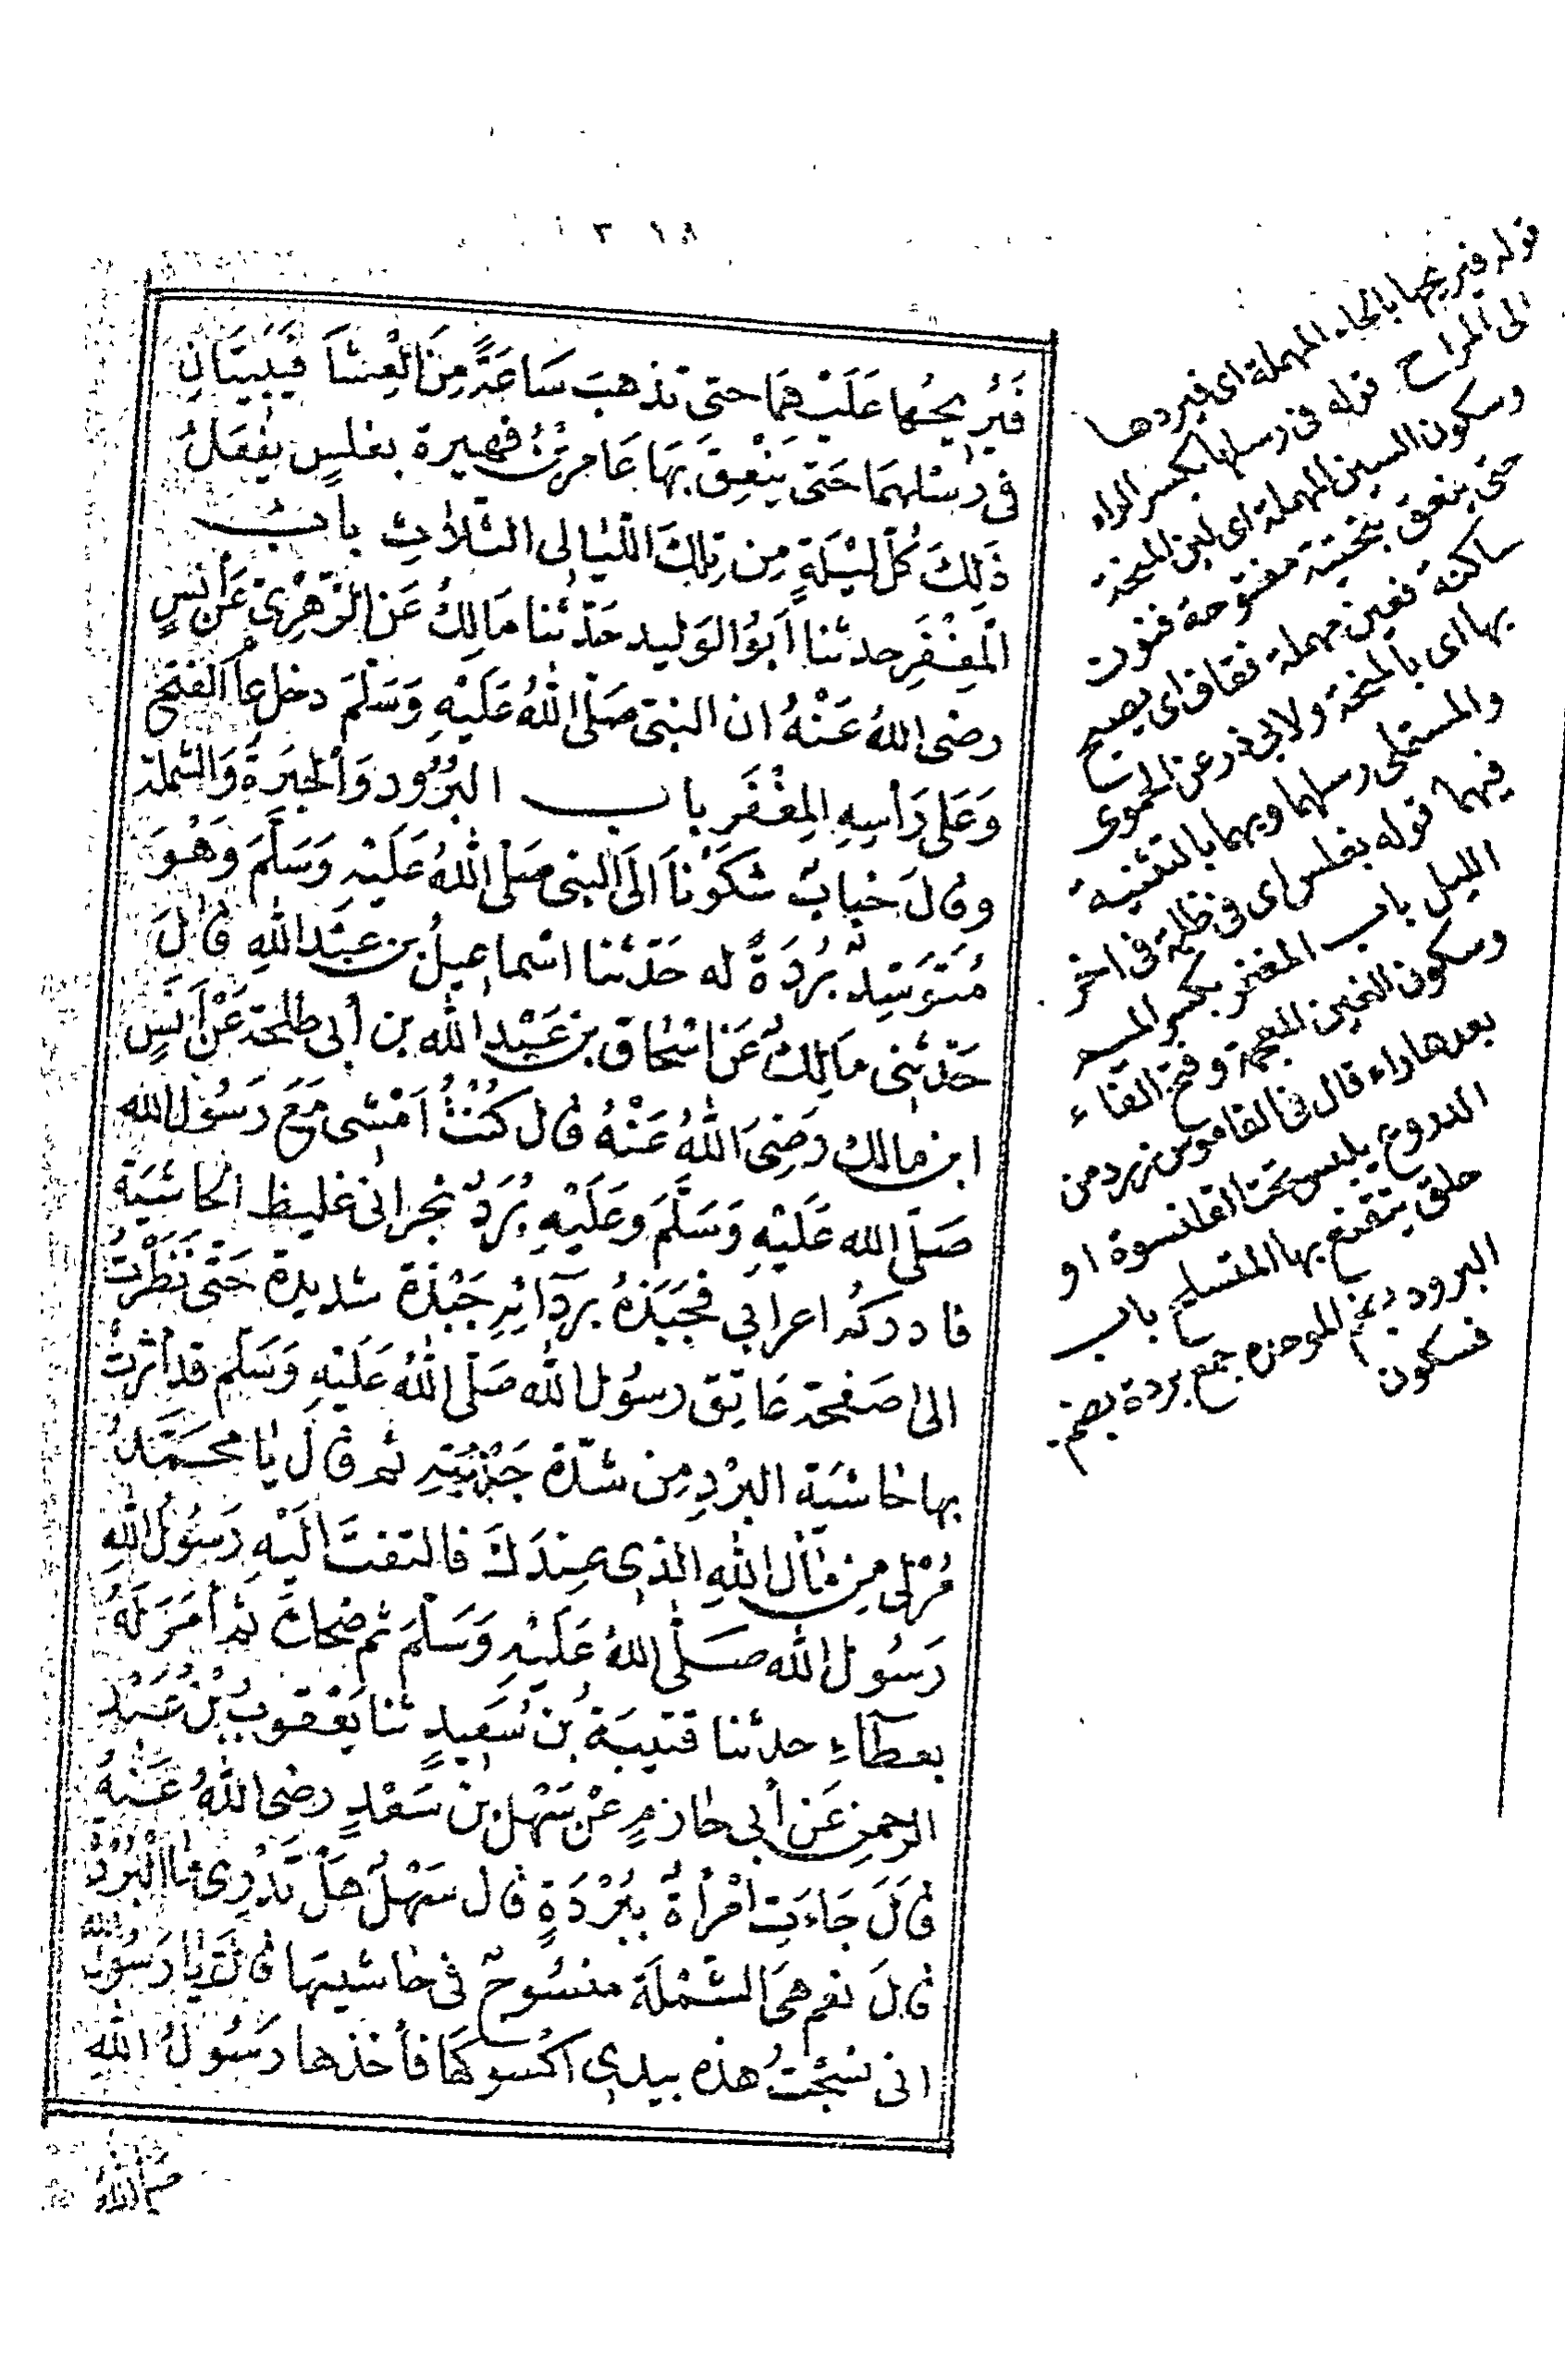 ٣١٨
فَيُرِيحُها عَلَيْهمَا حتى تذهبَ سَاعَةٌ مِنَ الْعِشَاَ فَيَبِيتَانِ
فى رِسْلهمَا حَتى يَنْعِقَ بِهَا عَامر بْنُ فهيرة بغلسٍ يفْعَلُ
ذَلِكَ كُلَّ لَيْلَةٍ مِن تِلكَ اللّيٰالى الثّلاٰثِ بابُ
الْمِغْفَرِ حدثنا اَبوُ الوَليد حَدّثنا مَالِكُ عَن الزّهْرِىّ عَن أنسٍ
رضى اللهُ عَنْهُ ان النبىّ صَلّى اللهُ عَلَيْهِ وَسَلّمَ دخل عامَ الفتح
وَعَلى رَأسِهِ المِغْفَر باب البُرُود وَالحِبَرَةِ وَالشملة
وقالَ خبابٌ شكَوْناَ الَى النبى صَلى اللهُ عَلَيْهِ وَسَلّمَ وَهْوَ
مُتَوَسِّدٌ بُرْدَةً له حَدّثنا اسْماعِيلُ بن عَبْد اللهِ قالَ
حَدّثنى مَالِكُ عَن اسْحٰاق بن عَبْد الله بن أبى طلحة عَن أنسٍ
ابن مالك رَضِىَ اللهُ عَنْهُ قال كُنْتُ اَمْشى مَعَ رَسُول الله
صَلّى الله عَلَيْهِ وَسَلّمَ وعَلَيْهِ بُردٌ نجرانى غليظ الحَاشيَة
فادركه اعرابى فجَبَذهُ بردَآئهِ جَبْذة شديدة حَتّى نَظَرْتُ
الى صَفحَة عَاتِق رسوُل الله صَلّى اللهُ عَلَيْهِ وَسَلّم قد أثرتْ
بها حاشيَة البُرْدِ مِن شدّة جَبْذتِهِ ثم قالَ يا محَمَّدُ
مُرْلى مِن مّالِ اللهِ الذى عِندَكَ فالتفتَ الَيْهِ رَسُولُ اللهِ
رَسُول الله صَلّى اللهُ عَلَيْهِ وَسَلّمَ ثم ضحك ثم أمَرَ لَهُ
بعطآءٍ حدثنا قتيبَةُ بن سَعيدٍ ثنا يَعْقوب بْن عَبْد
الرحمن عَن أبى حازمٍ عَن سَهْل بن سَعْدٍ رضى اللهُ عَنْهُ
قالَ جَاءَتِ امْرأةٌ بِبُرْدَةٍ قال سَهْلُ هلْ تَدْرِى مَا الْبُرْدَة
قالَ نعم هىَ الشّمْلَة منسُوجٌ فى حاشيتها قالت يا رَسُولَ الله
انى نسَجْتُ هذه بيدى اكْسوكهَا فأخذها رَسُولُ اللهِ
صَلّى اللهُ
قوله فيريحها بالحاء المهملة اى فيردها
الى المراح قوله فى رسلها بكسر الراء
وسكون السين المهملة اى لبن المنحة
حتى ينعق بتحتية مفتوحة فنون
ساكنة فعين مهملة فقاف اى يصيح
بها اى بالمنحة ولابى ذر عن الحموى
والمستملى رسلهما وبهما بالتثنية
فيهما قوله بغلس اى فى ظلمة فى اخر
الليل باب المغفر بكسر الميم
وسكون الغين المعجمة وفتح الفاء
بعدها راء قال فى القاموس زرد من
الدروع يلبس تحت القلنسوة او
حلق يتقنع بها المتسلح باب
البرود بضم الموحدة جمع بردة بضم
فسكون